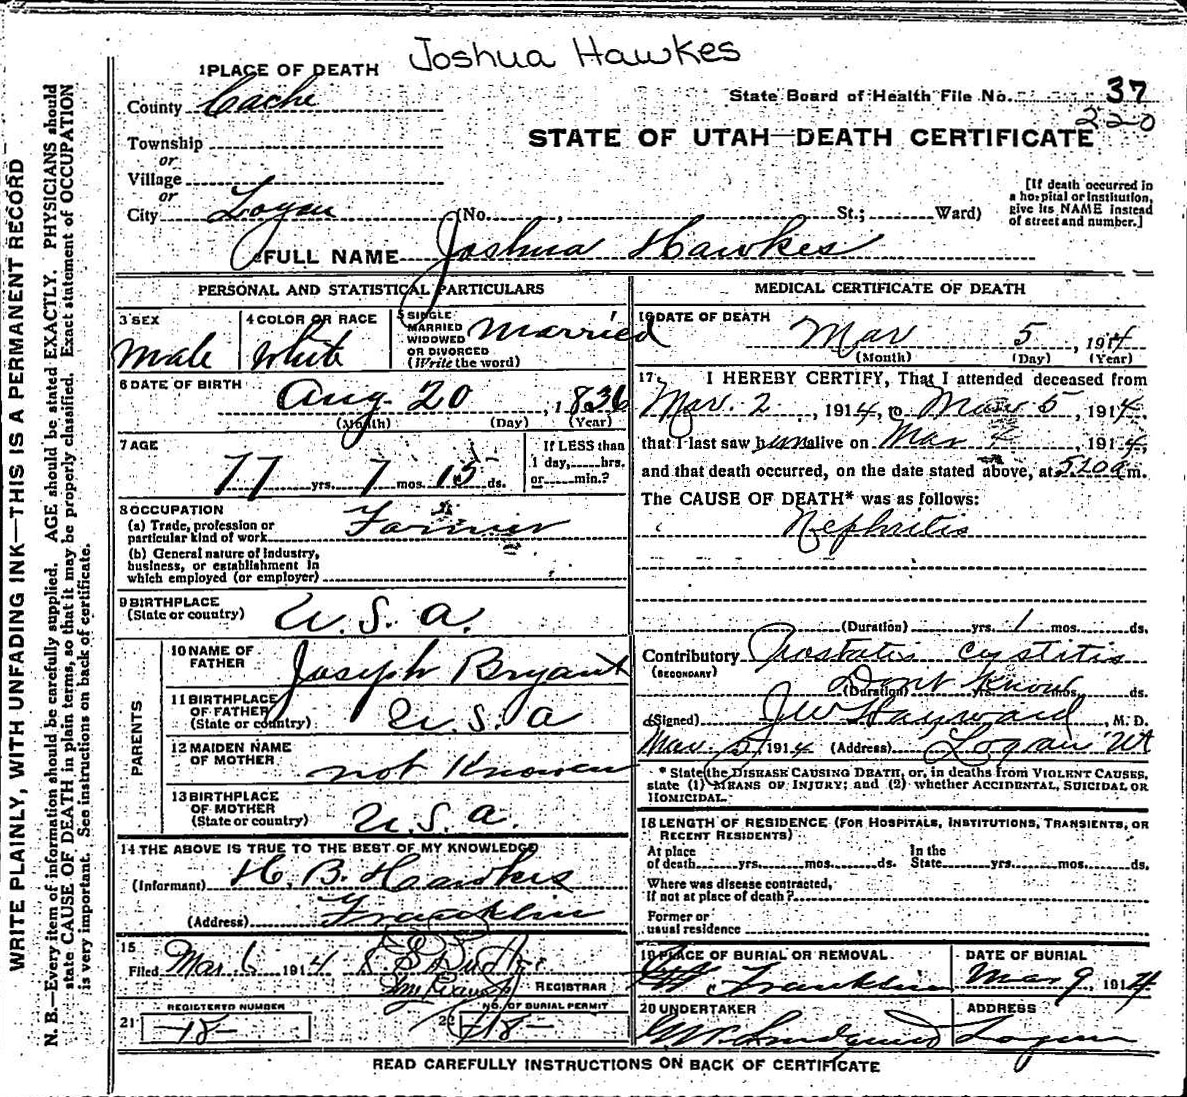 Joshua Hawkes
1 PLACE OF DEATH
County Cache
State Board of Health File No. 37
220
Township
or
STATE OF UTAH—DEATH CERTIFICATE
Village
or
City Logan (No. , St.; Ward)
[If death occurred in
a hospital or institution,
give its NAME instead
of street and number.]
FULL NAME Joshua Hawkes
PERSONAL AND STATISTICAL PARTICULARS
3 SEX
Male
4 COLOR OR RACE
White
5 SINGLE
MARRIED
WIDOWED
OR DIVORCED
(Write the word)
Married
6 DATE OF BIRTH
Aug 20, 1836
(Month) (Day) (Year)
7 AGE
77 yrs. 7 mos. 15 ds.
If LESS than
1 day, hrs.
or min.?
8 OCCUPATION
(a) Trade, profession or
particular kind of work Farmer
(b) General nature of industry,
business, or establishment in
which employed (or employer)
9 BIRTHPLACE
(State or country) U. S. a.
PARENTS
10 NAME OF
FATHER Joseph Bryant
11 BIRTHPLACE
OF FATHER
(State or country) U. S. a
12 MAIDEN NAME
OF MOTHER not Knowen
13 BIRTHPLACE
OF MOTHER
(State or country) U. S. a.
14 THE ABOVE IS TRUE TO THE BEST OF MY KNOWLEDGE
(Informant) H. B. Hawkes
(Address) Franklin
15
Filed Mar. 6 1914
REGISTRAR
REGISTERED NUMBER
21 -18-
NO. OF BURIAL PERMIT
22 -18-
MEDICAL CERTIFICATE OF DEATH
16 DATE OF DEATH
Mar 5, 1914
(Month) (Day) (Year)
17 I HEREBY CERTIFY, That I attended deceased from
Mar. 2, 1914, to Mar 5, 1914,
that I last saw him alive on Mar 4, 1914,
and that death occurred, on the date stated above, at 520a m.
The CAUSE OF DEATH* was as follows:
Nephritis
(Duration) yrs. 1 mos. ds.
Contributory Prostatis cystitis
(SECONDARY)
(Duration) Dont Know mos. ds.
(Signed) J W Hayward, M. D.
Mar. 5, 1914 (Address) Logan Ut
* State the DISEASE CAUSING DEATH, or, in deaths from VIOLENT CAUSES,
state (1) MEANS OF INJURY; and (2) whether ACCIDENTAL, SUICIDAL OR
HOMICIDAL.
18 LENGTH OF RESIDENCE (FOR HOSPITALS, INSTITUTIONS, TRANSIENTS, OR
RECENT RESIDENTS)
At place
of death yrs. mos. ds.
In the
State yrs. mos. ds.
Where was disease contracted,
if not at place of death?
Former or
usual residence
19 PLACE OF BURIAL OR REMOVAL
Franklin
DATE OF BURIAL
Mar 9 1914
20 UNDERTAKER
ADDRESS
Logan
READ CAREFULLY INSTRUCTIONS ON BACK OF CERTIFICATE
WRITE PLAINLY, WITH UNFADING INK—THIS IS A PERMANENT RECORD
N. B.—Every item of information should be carefully supplied. AGE should be stated EXACTLY. PHYSICIANS should
state CAUSE OF DEATH in plain terms, so that it may be properly classified. Exact statement of OCCUPATION
is very important. See instructions on back of certificate.